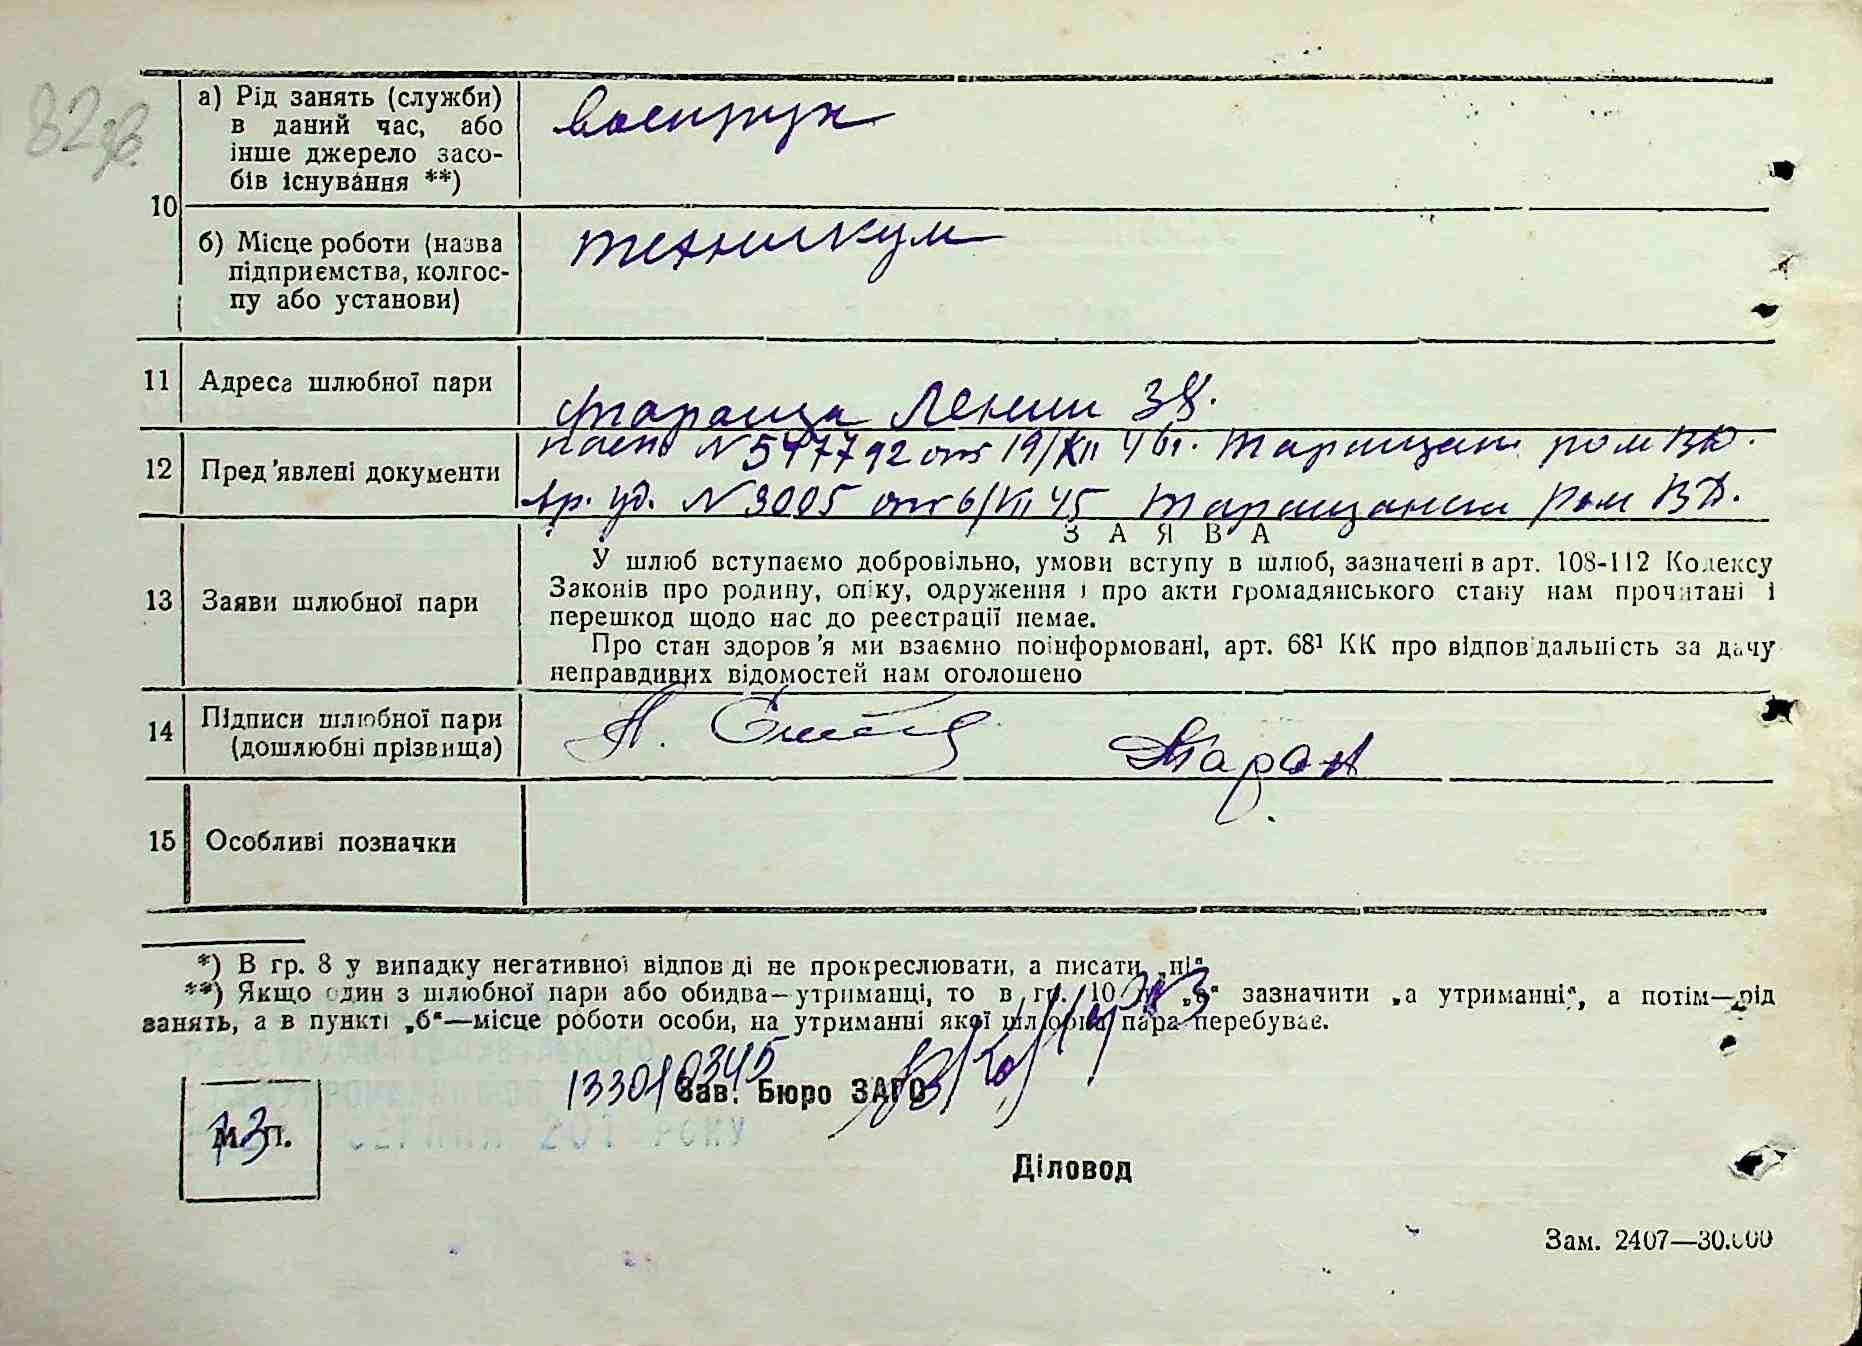 82 зв.
10
а) Рід занять (служби)
в даний час, або
інше джерело засо-
бів існування **)
военрук
б) Місце роботи (назва
підприємства, колгос-
пу або установи)
техникум
11 Адреса шлюбної пари
Тараща Ленин 38.
12 Пред'явлені документи
пасп N 547792 от 19/XII 46г. Таращан РОМ ВД.
вр. уд. N 3005 от 6/VII 45 Таращански Ром ВД.
13 Заяви шлюбної пари
ЗАЯВА
У шлюб вступаємо добровільно, умови вступу в шлюб, зазначені в арт. 108-112 Кодексу
Законів про родину, опіку, одруження і про акти громадянського стану нам прочитані і
перешкод щодо нас до реєстрації немає.
Про стан здоров'я ми взаємно поінформовані, арт. 68¹ КК про відповідальність за дачу
неправдивих відомостей нам оголошено
14 Підписи шлюбної пари
(дошлюбні прізвища)
Таран
15 Особливі позначки
*) В гр. 8 у випадку негативної відповіді не прокреслювати, а писати „ні“
**) Якщо один з шлюбної пари або обидва—утриманці, то в гр. 10 п. „а“ зазначити „а утриманні“, а потім—рід
занять, а в пункті „б“—місце роботи особи, на утриманні якої шлюбна пара перебуває.
133010345
Зав. Бюро ЗАГС
М. П.
13
СЕРПНЯ 201 РОКУ
Діловод
Зам. 2407—30.000